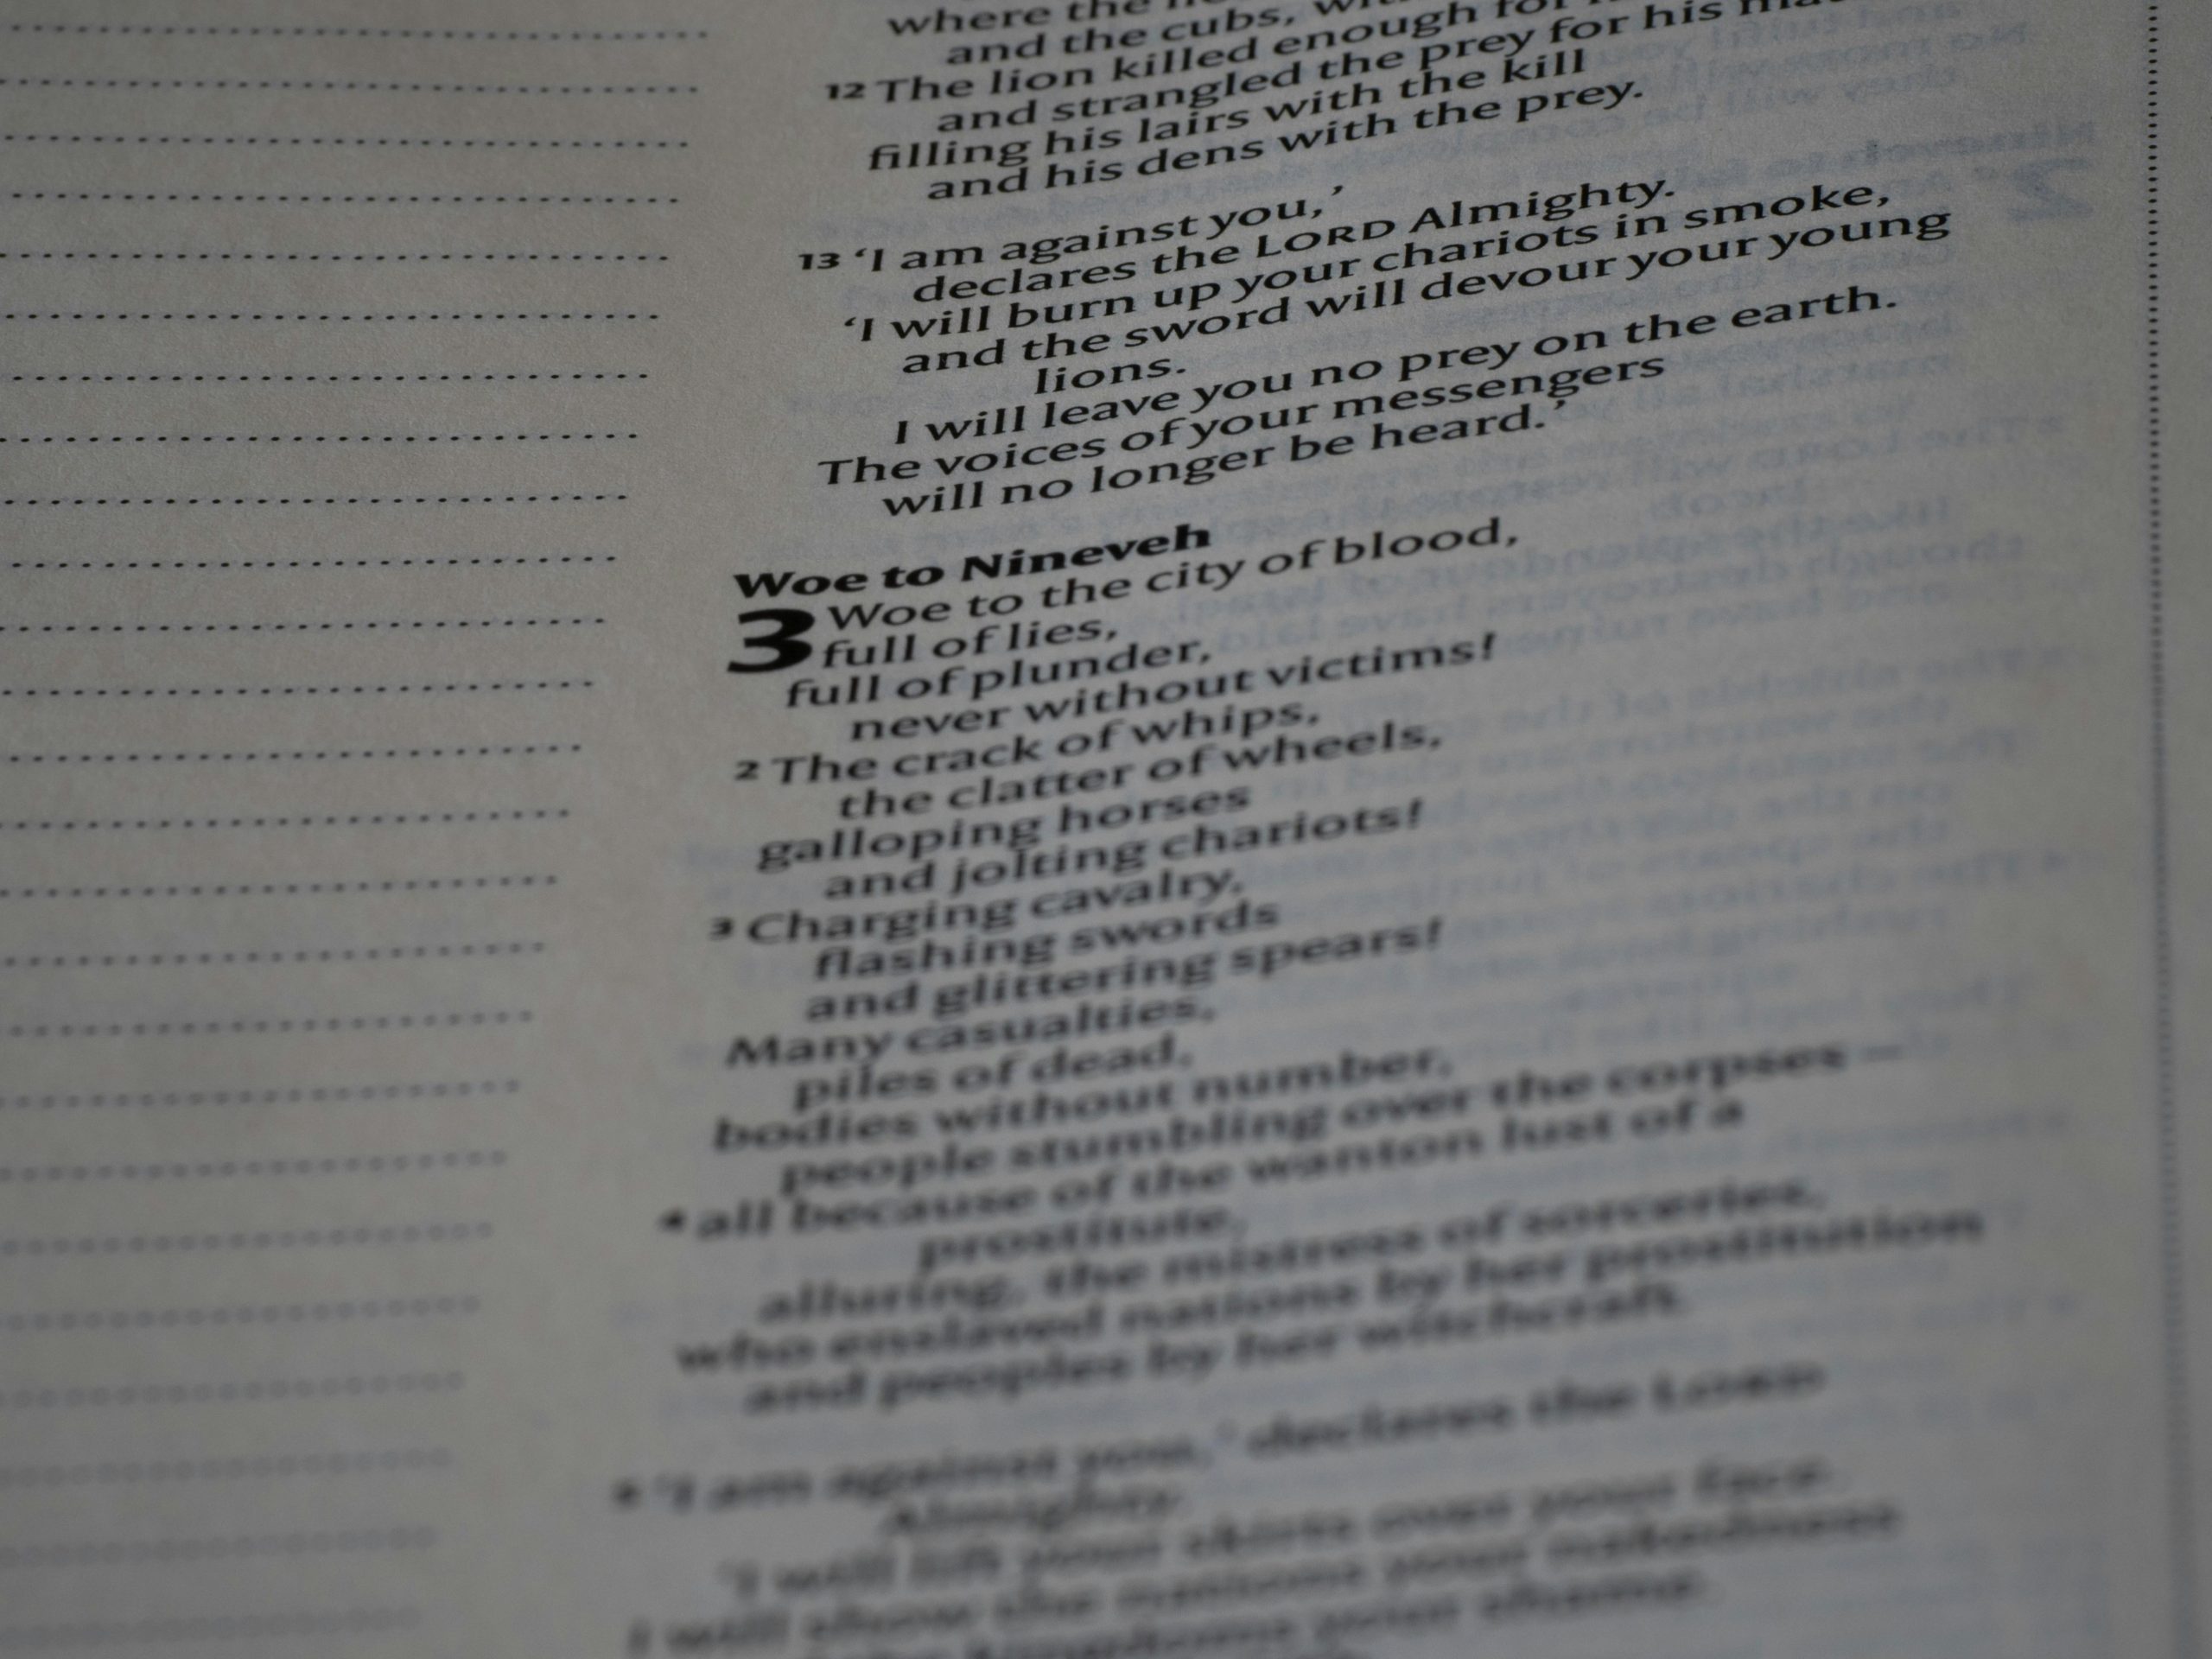 where the
and the cubs,
12 The lion killed enough for
and strangled the prey for his
filling his lairs with the kill
and his dens with the prey.
13 ‘I am against you,’
declares the LORD Almighty.
‘I will burn up your chariots in smoke,
and the sword will devour your young
lions.
I will leave you no prey on the earth.
The voices of your messengers
will no longer be heard.’
Woe to Nineveh
3 Woe to the city of blood,
full of lies,
full of plunder,
never without victims!
2 The crack of whips,
the clatter of wheels,
galloping horses
and jolting chariots!
3 Charging cavalry,
flashing swords
and glittering spears!
Many casualties,
piles of dead,
bodies without number,
people stumbling over the corpses –
4 all because of the wanton lust of a
prostitute,
alluring, the mistress of sorceries,
who enslaved nations by her prostitution
and peoples by her witchcraft.
5 ‘I am against you,’ declares the LORD
Almighty.
‘I will lift your skirts over your face.
I will show the nations your nakedness